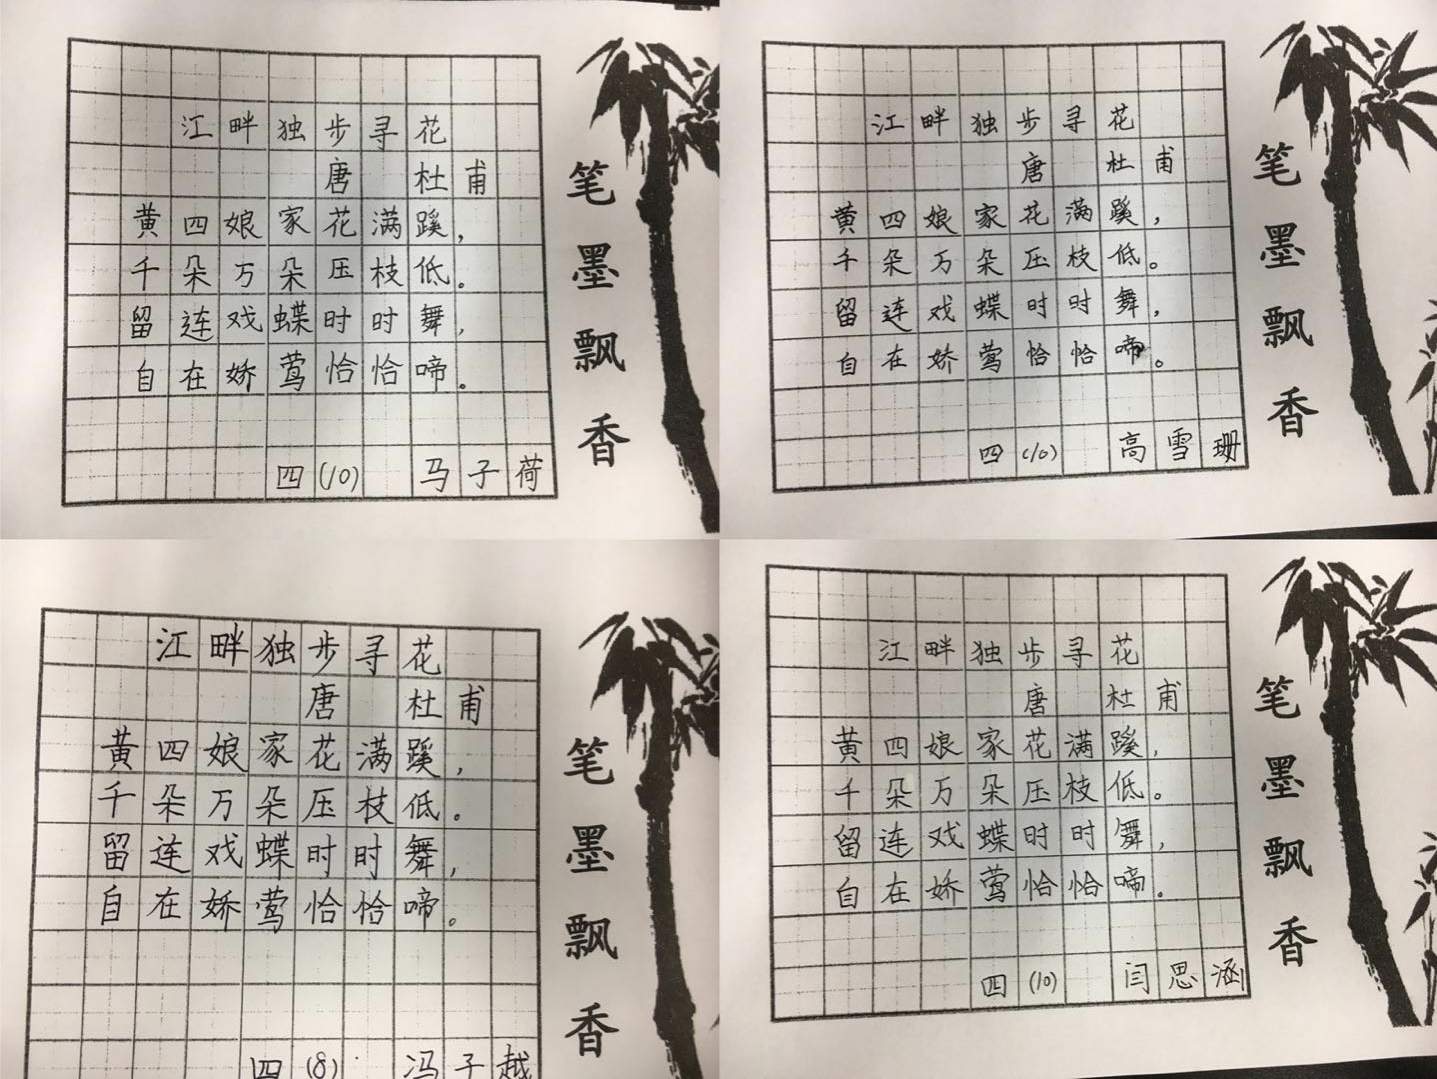 江畔独步寻花
唐 杜甫
黄四娘家花满蹊，
千朵万朵压枝低。
留连戏蝶时时舞，
自在娇莺恰恰啼。
四(10) 马子荷
笔墨飘香
江畔独步寻花
唐 杜甫
黄四娘家花满蹊，
千朵万朵压枝低。
留连戏蝶时时舞，
自在娇莺恰恰啼。
四(10) 高雪珊
笔墨飘香
江畔独步寻花
唐 杜甫
黄四娘家花满蹊，
千朵万朵压枝低。
留连戏蝶时时舞，
自在娇莺恰恰啼。
四(8) 冯子越
笔墨飘香
江畔独步寻花
唐 杜甫
黄四娘家花满蹊，
千朵万朵压枝低。
留连戏蝶时时舞，
自在娇莺恰恰啼。
四(10) 闫思涵
笔墨飘香